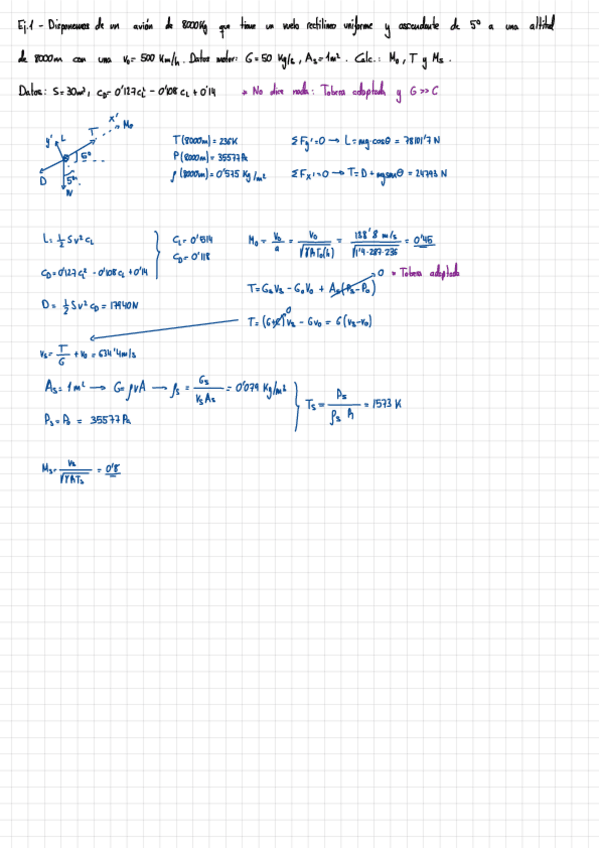 Ej.1 - Disponemos de un avión de 8000Kg que tiene un vuelo rectilíneo uniforme y ascendente de 5° a una altitud
de 8000m con una V₀= 500 Km/h. Datos motor: G=50 Kg/s, Aₛ=1m². Calc.: M₀, T y Mₛ.
Datos: S=30m², C_D=0'127C_L² - 0'108C_L + 0'14 * No dice nada: Tobera adaptada y G >> C
x'
M₀
y' L T
5°
D 5°
N
T(8000m)=236K
P(8000m)=35577Pa
ρ(8000m)=0'525 Kg/m³
ΣFy'=0 → L=mg·cosθ = 78101'7 N
ΣFx'=0 → T=D+mgsenθ = 24793 N
L=½Sv²C_L
C_D=0'127C_L² - 0'108C_L + 0'14
C_L=0'514
C_D=0'118
D= ½Sv²C_D = 17940N
M₀= V₀/a = V₀/√(γRT₀(h)) = 138'8 m/s/√(1'4·287·236) = 0'45
T=GₛVₛ-G₀V₀ + Aₛ(Pₛ-P₀) 0 * Tobera adaptada
T=(G+C)Vₛ - GV₀ = G(Vₛ-V₀)
0
Vₛ= T/G + V₀ = 634'4m/s
Aₛ=1m² → G=ρvA → ρₛ = Gₛ/(VₛAₛ) = 0'079 Kg/m³
Pₛ=P₀ = 35577Pa
Tₛ= Pₛ/(ρₛ R) = 1573 K
Mₛ= Vₛ/√(γRTₛ) = 0'8